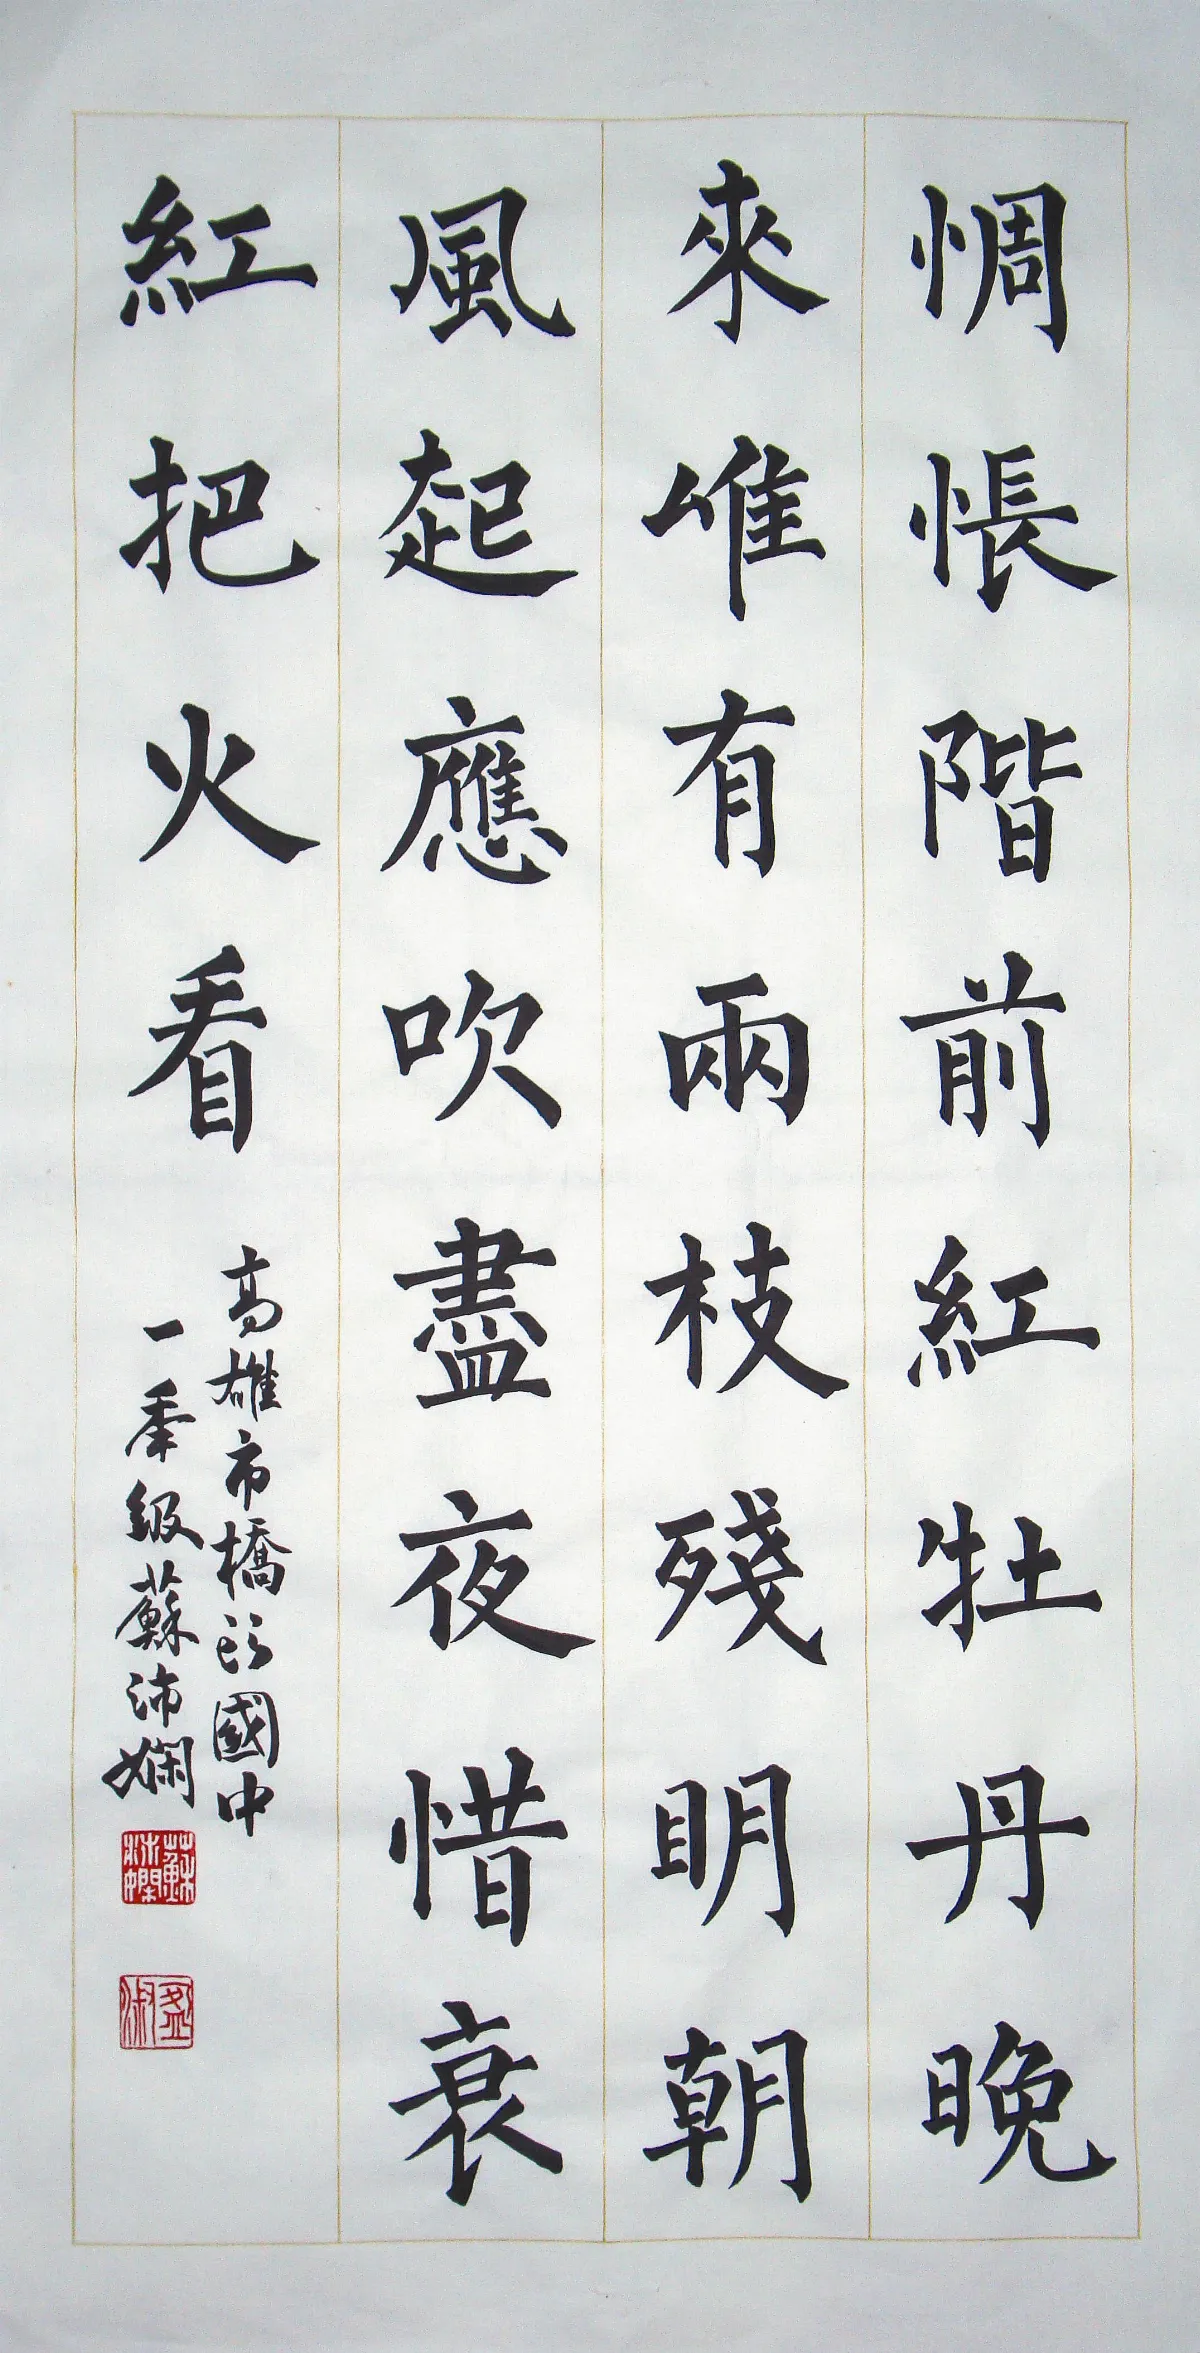 惆悵階前紅牡丹晚
來唯有兩枝殘明朝
風起應吹盡夜惜衰
紅把火看
高雄市橋頭國中
一年級蘇沛嫻